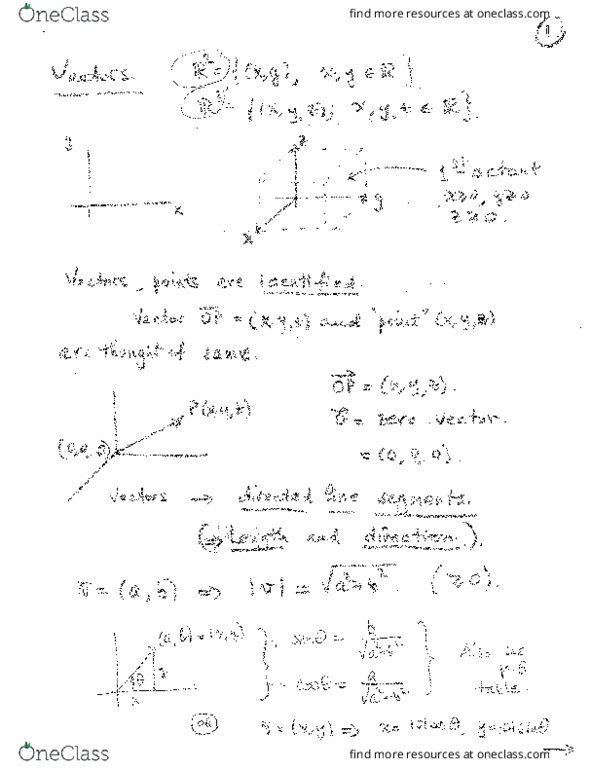 OneClass
find more resources at oneclass.com
1
Vectors. ℝ² = {(x,y), x,y ∈ ℝ}
ℝ³ = {(x,y,z); x,y,z ∈ ℝ}
y
x
z
y
x
1st octant
x≥0, y≥0
z≥0.
Vectors, points are identified.
Vector OP = (x,y,z) and "point" (x,y,z)
are thought of same.
OP = (x,y,z).
P(x,y,z)
= zero vector
(0,0,0)
= (0,0,0).
Vectors → directed line segments.
(→ Length and direction).
v = (a,b) ⇒ |v| = √a²+b². (≥0).
(a,b) = (x,y)
θ
sinθ = b/√a²+b²
cosθ = a/√a²+b²
Also see
p.8
table.
OR
v = (x,y) ⇒ x = |v|cosθ, y = |v|sinθ
OneClass
find more resources at oneclass.com